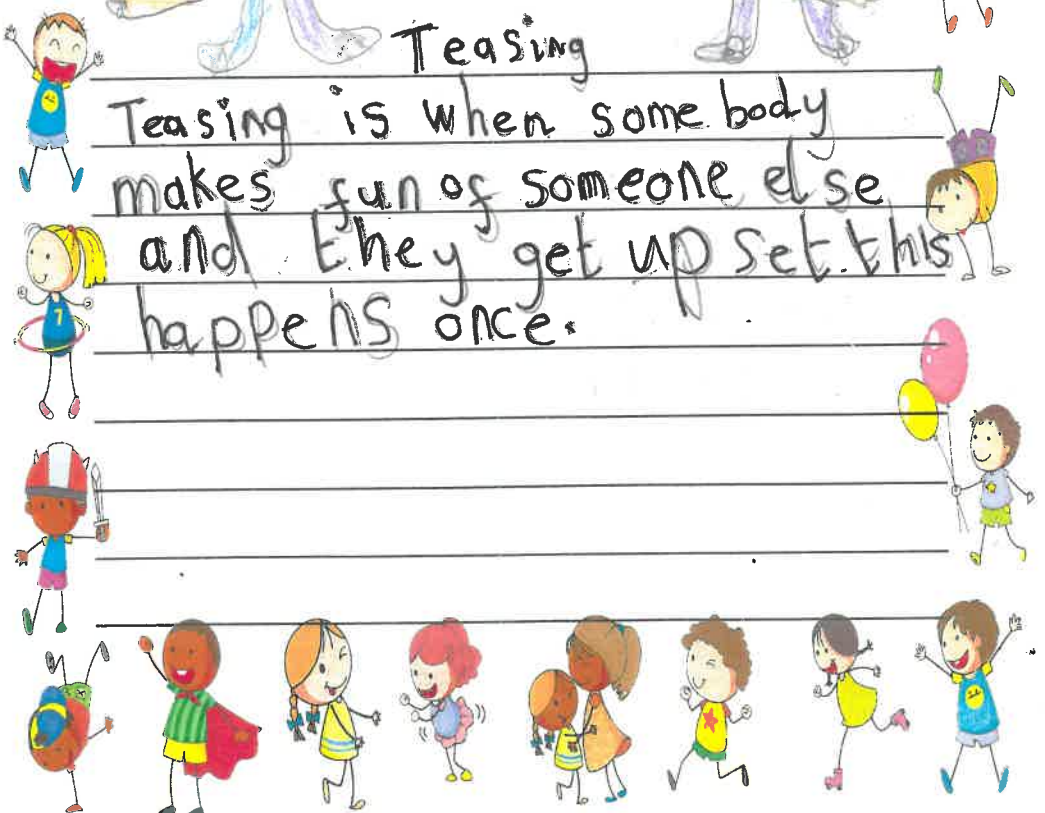 Teasing
Teasing is when somebody
makes fun of someone else
and they get upset. this
happens once.
7